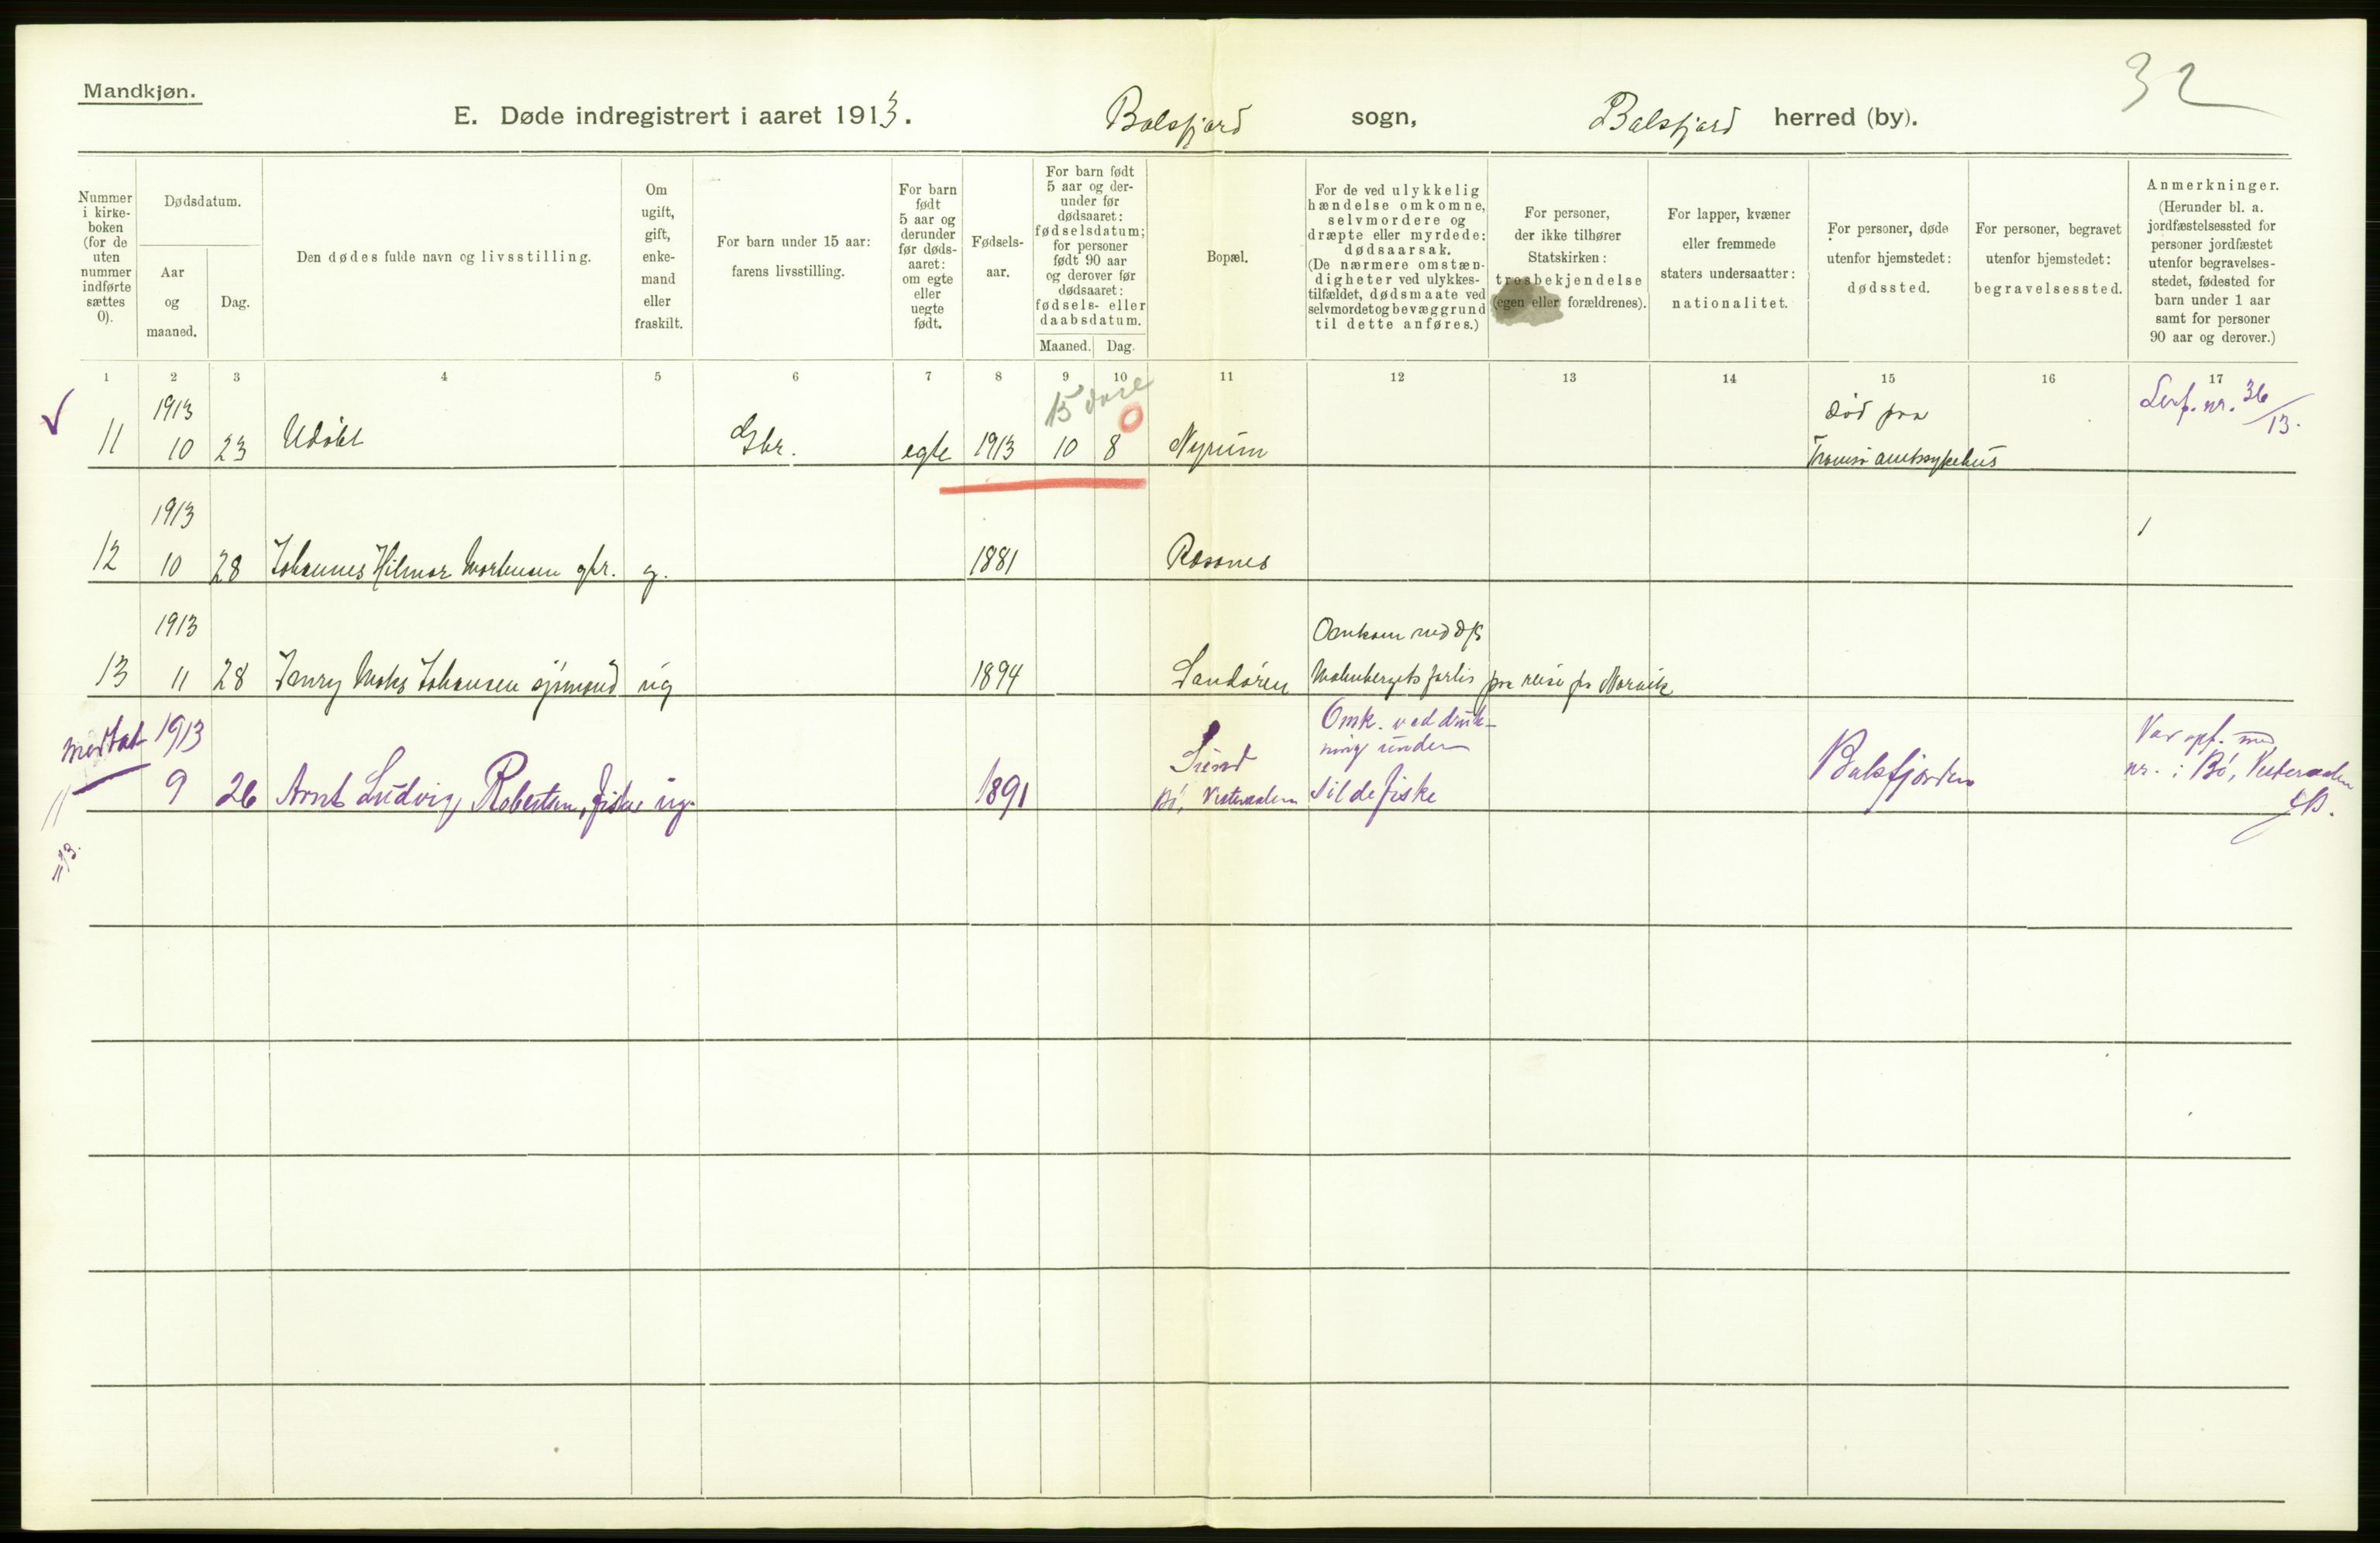 Mandkjøn.
32
E. Døde indregistrert i aaret 1913.
Balsfjord sogn, Balsfjord herred (by).
Nummer i kirke-boken (for de uten nummer indførte sættes 0).
Dødsdatum.
Aar og maaned.
Dag.
Den dødes fulde navn og livsstilling.
Om ugift, gift, enke-mand eller fraskilt.
For barn under 15 aar: farens livsstilling.
For barn født 5 aar og derunder før døds-aaret: om egte eller uegte født.
Fødsels-aar.
For barn født 5 aar og der-under før dødsaaret: fødselsdatum; for personer født 90 aar og derover før dødsaaret: fødsels- eller daabsdatum.
Maaned. Dag.
Bopæl.
For de ved ulykkelig hændelse omkomne, selvmordere og dræpte eller myrdede: dødsaarsak. (De nærmere omstæn-digheter ved ulykkes-tilfældet, dødsmaate ved selvmordet og bevæggrund til dette anføres.)
For personer, der ikke tilhører Statskirken: trosbekjendelse (egen eller forældrenes).
For lapper, kvæner eller fremmede staters undersaatter: nationalitet.
For personer, døde utenfor hjemstedet: dødssted.
For personer, begravet utenfor hjemstedet: begravelsessted.
Anmerkninger. (Herunder bl. a. jordfæstelsessted for personer jordfæstet utenfor begravelses-stedet, fødested for barn under 1 aar samt for personer 90 aar og derover.)
1 2 3 4 5 6 7 8 9 10 11 12 13 14 15 16 17
15 dage 0
1913 død paa nr. 36/13.
11 10 23 Udøbt Gbr. egte 1913 10 8 Nyrum Tromsø amtssykehus
1913 1
12 10 28 Johannes Hilmar Mortensen gbr. g. 1881
1913 Omkom ved d/s
13 11 28 Johansen sjømand ug 1894 Sandøren Malmbergets forlis paa reise fr Narvik
medtat 1913 Sund Omk. ved druk-ning under Var opf. med
9 26 Arnt Ludvig Robertsen, fisker ug. 1891 Bø, Vesteraalen sildefiske Balsfjorden nr. i Bø, Vesteraalen